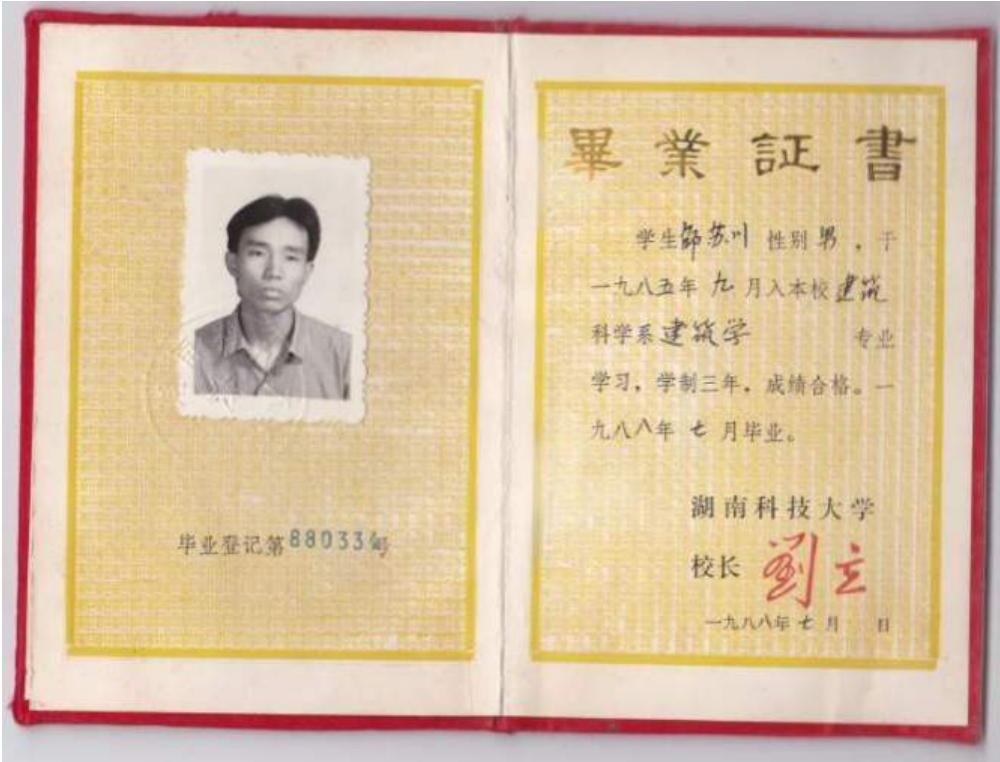 毕业登记第880334号
畢業証書
学生邹苏川 性别男，于
一九八五年 九 月入本校建筑
科学系建筑学 专业
学习，学制三年，成绩合格。一
九八八年 七 月毕业。
湖南科技大学
校长 劉立
一九八八年 七 月 日